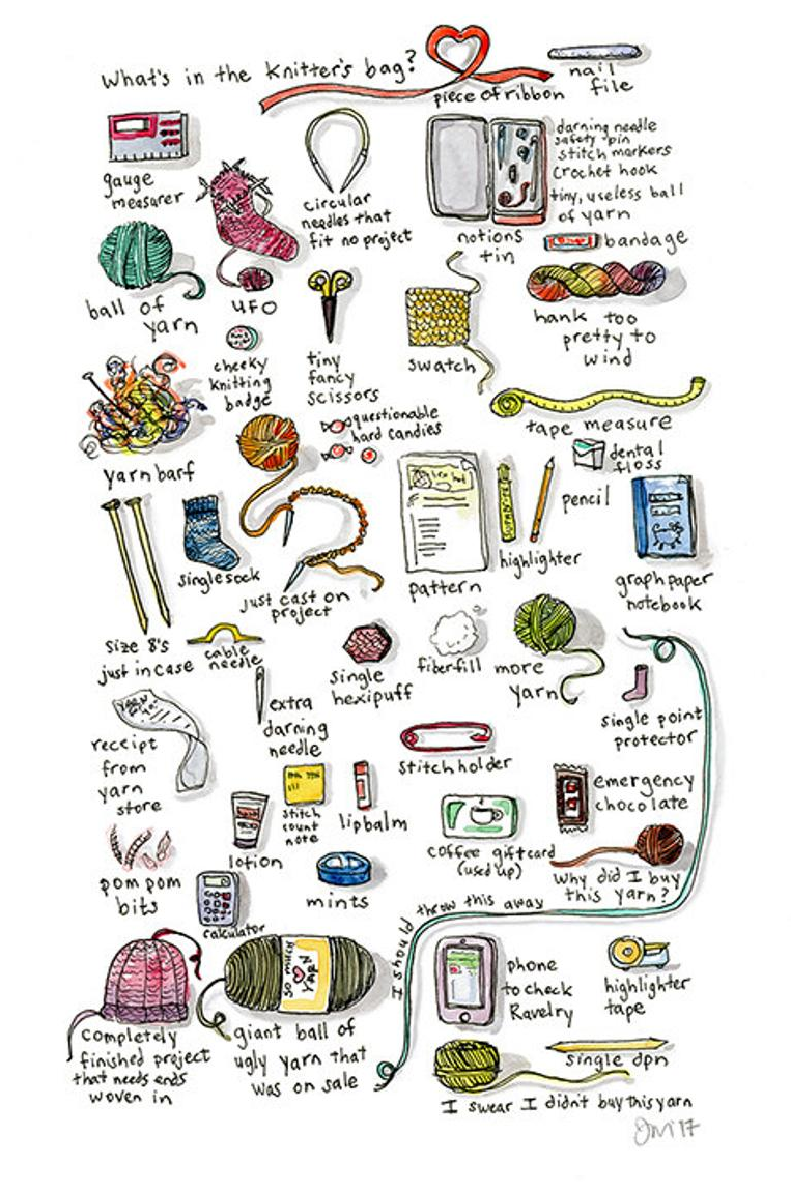 What's in the knitter's bag?
piece of ribbon
nail
file
gauge
measurer
circular
needles that
fit no project
darning needle
safety pin
stitch markers
crochet hook
tiny, useless ball
of yarn
notions
tin
bandage
ball of
yarn
UFO
cheeky
knitting
badge
tiny
fancy
scissors
swatch
hank too
pretty to
wind
tape measure
yarn barf
questionable
hard candies
dental
floss
pencil
highlighter
pattern
graph paper
notebook
single sock
just cast on
project
size 8's
just in case
cable
needle
extra
darning
needle
single
hexipuff
fiberfill
more
yarn
single point
protector
receipt
from
yarn
store
stitch holder
stitch
count
note
lip balm
lotion
emergency
chocolate
coffee gift card
(used up)
why did I buy
this yarn?
pom pom
bits
calculator
mints
I should throw this away
SO MUCH
YARN
completely
finished project
that needs ends
woven in
giant ball of
ugly yarn that
was on sale
phone
to check
Ravelry
highlighter
tape
single dpn
I swear I didn't buy this yarn